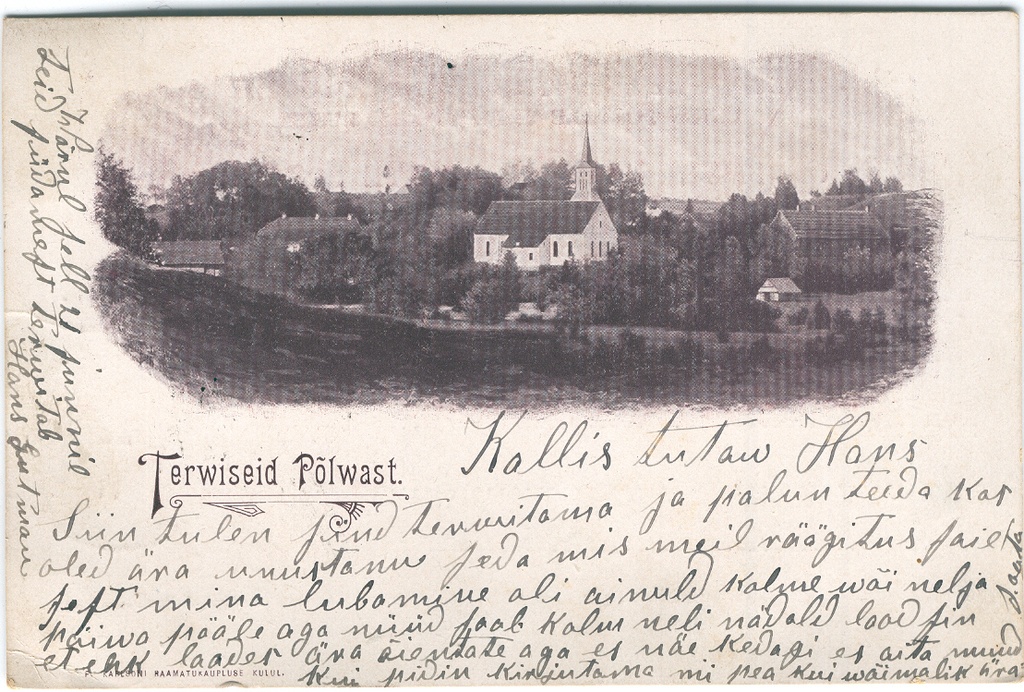 Terwiseid Põlwast.
Kallis tutaw Hans
Siin tulen sind terwitama ja palun teeda kas
oled ära unustanu seda mis meil räägitus saie
sest mina lubamine oli ainuld kolme wäi nelja
päiwa pääle aga nüüd saab kolm neli nädald
et ehk laades ära äientate aga es näe kedagi es aita muud
kui pidin kirjutama ni pea kui wäimalik ära
saata
Wärul sell 21 junnil
Teid püdamest terwitab
Hans
K. KARLSONI RAAMATUKAUPLUSE KULUL.